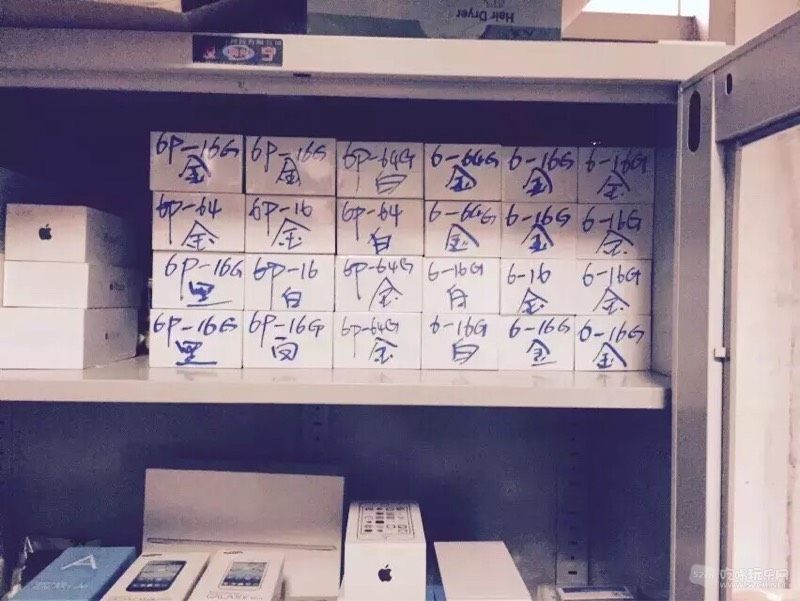 Hair Dryer
6P-16G
金
6P-16G
金
6P-64G
白
6-64G
金
6-16G
金
6-16G
金
6P-64
金
6P-16
金
6P-64
白
6-64G
金
6-16G
金
6-16G
金
6P-16G
黑
6P-16
白
6P-64G
金
6-16G
白
6-16
金
6-16G
金
6P-16G
黑
6P-16G
白
6P-64G
金
6-16G
白
6-16G
金
6-16G
金
A
吃喝玩乐网